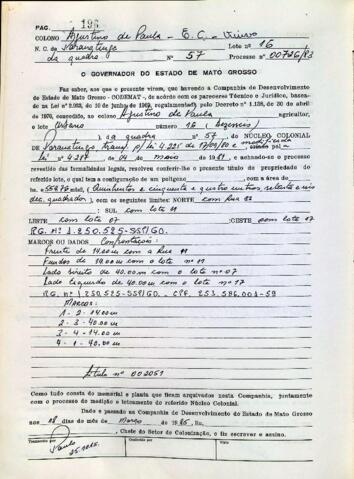 PAG. 196
COLONO Agustino de Paula - E. C. - Viuvo
N. C. de Paranatinga Lote nº 16
da quadra Nº 57 Processo nº 00726/83
O GOVERNADOR DO ESTADO DE MATO GROSSO
Faz saber, aos que a presente virem, que havendo a Companhia de Desenvolvimento
do Estado de Mato Grosso - CODEMAT -, de acordo com os pareceres Técnico e Jurídico, basea-
da na Lei nº 2.023, de 30 de junho de 1962, regulamentada pelo Decreto nº 1.138, de 30 de abril
de 1970, concedido, ao colono Agustino de Paula agricultor,
o lote Urbano número 16 (dezesseis)
), da quadra nº 57, do NÚCLEO COLONIAL
de Paranatinga, Lei 4.221 de 17/09/80 e modificada pela
Lei nº 4.287 de 04 de maio de 1981, e achando-se o processo
revestido das formalidades legais, resolve conferir-lhe o presente título de propriedade do
referido lote, o qual tem a configuração de um polígono, com a área de
(Quinhentos e cinquenta e quatro metros, setenta e seis
dec. quadrados), com os seguintes limites: NORTE com Rua
: SUL com lote 11
LESTE com lote 07 :OESTE com lote 07
RG. Nº 1.250.525-SSP/GO.
MARCOS OU DADOS Confrontações:
Frente de 14.00m com a Rua 11
Fundos de 14.00m com o lote nº 11
Lado direito de 40.00m com o lote nº 07
Lado esquerdo de 40.00m com o lote nº 17
RG. Nº 1.250.525-SSP/GO. - CPF. 253.586.001-59
MARCOS:
1 - 2 - 14.00m
2 - 3 - 40.00m
3 - 4 - 14.00m
4 - 1 - 40.00m
título nº 002051
Como tudo consta do memorial e planta que ficam arquivados nesta Companhia, juntamente
com o processo de medição e loteamento do referido Núcleo Colonial.
Dado e passado na Companhia de Desenvolvimento do Estado de Mato Grosso
aos 08 dias do mês de Março de 1985, Eu,
, Chefe do Setor de Colonização, o fiz escrever e assino.
Conferido por
Visto
Paulo